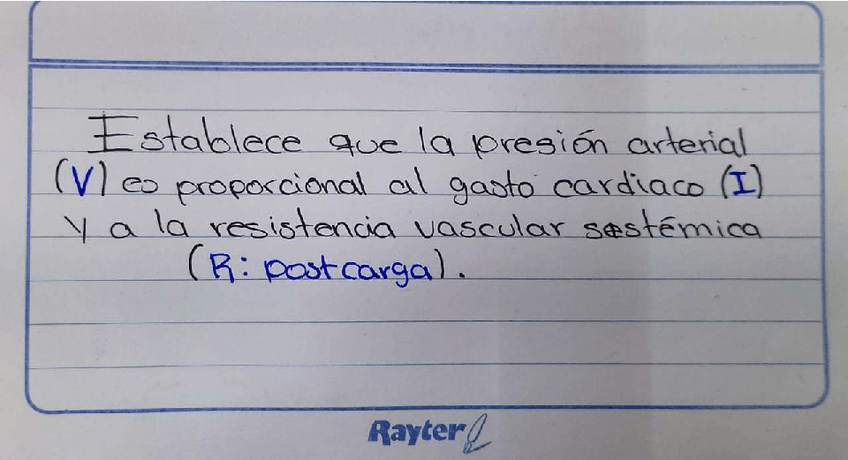 Establece que la presión arterial
(V) es proporcional al gasto cardiaco (I)
y a la resistencia vascular sistémica
(R: postcarga).
Rayter